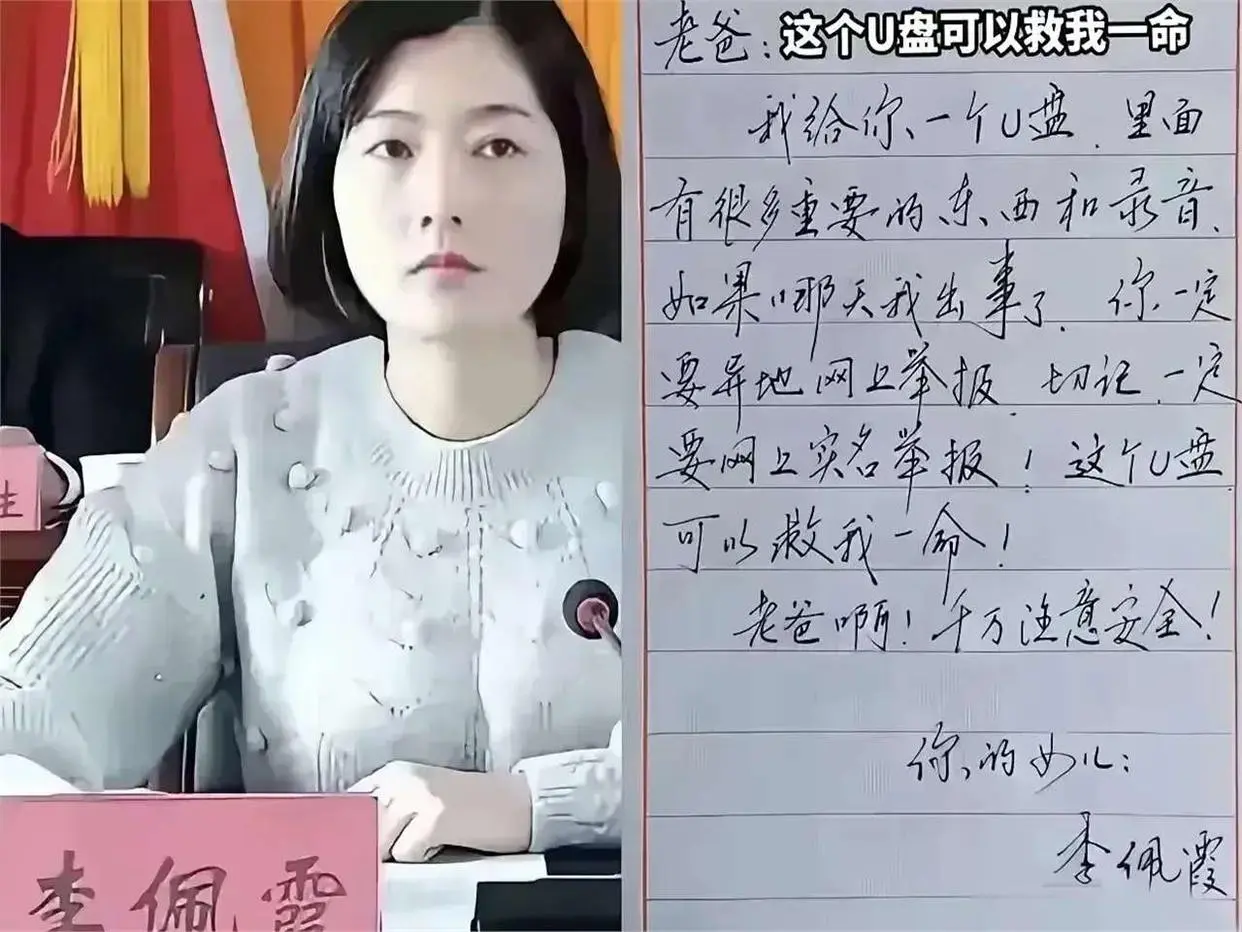 生
李佩霞
这个U盘可以救我一命
老爸：
我给你一个U盘，里面
有很多重要的东西和录音，
如果哪天我出事了，你一定
要异地网上举报，切记，一定
要网上实名举报！这个U盘
可以救我一命！
老爸啊！千万注意安全！
你的女儿：
李佩霞